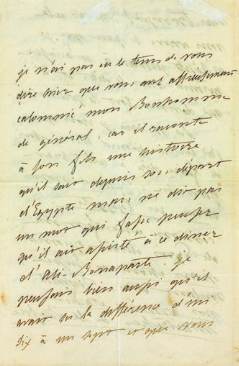 je n'ai pas eu le tems de vous
dire hier que vous avez affreusement
calomnié mon Bonhomme
de général, car il raconte
à son fils une histoire
qu'il sait depuis son départ
d'Egypte mais ne dit pas
un mot qui fasse penser
qu'il ait assisté à ce dîner
d'Ali-Bonaparte. je
pensais bien aussi qu'il
avait vu la différence d'un
dix à un sept et que vous